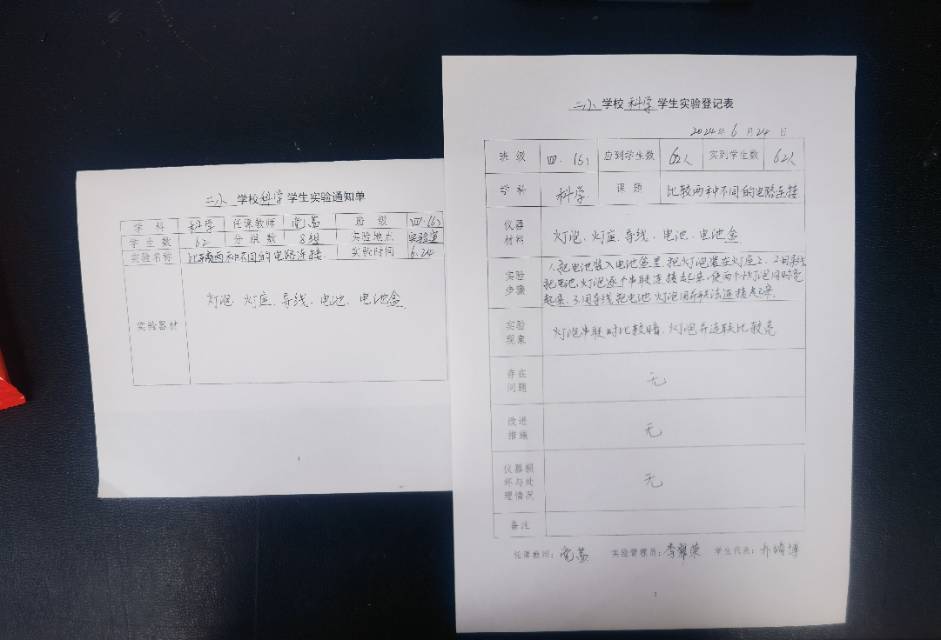 二小 学校 科学 学生实验通知单
学科 科学 任课教师 班级 四.(5)
学生数 62 分组数 8组 实验地点 实验室
实验名称 比较两种不同的电路连接 实验时间 6.24
实验器材 灯泡、灯座、导线、电池、电池盒
二小 学校 科学 学生实验登记表
2024年 6月 24日
班级 四.(5) 应到学生数 62人 实到学生数 62人
学科 科学 课题 比较两种不同的电路连接
仪器
材料 灯泡、灯座、导线、电池、电池盒
实验
步骤
1.把电池装入电池盒里,把灯泡装在灯座上,2.用导线
把电池,灯泡逐个串联连接起来,使两个小灯泡同时亮
起来,3.用导线把电池,灯泡用并联法连接起来。
实验
现象 灯泡串联时比较暗,灯泡并连联比较亮
存在
问题 无
改进
措施 无
仪器损
坏与处
理情况 无
备注
任课教师: 实验管理员: 学生代表: